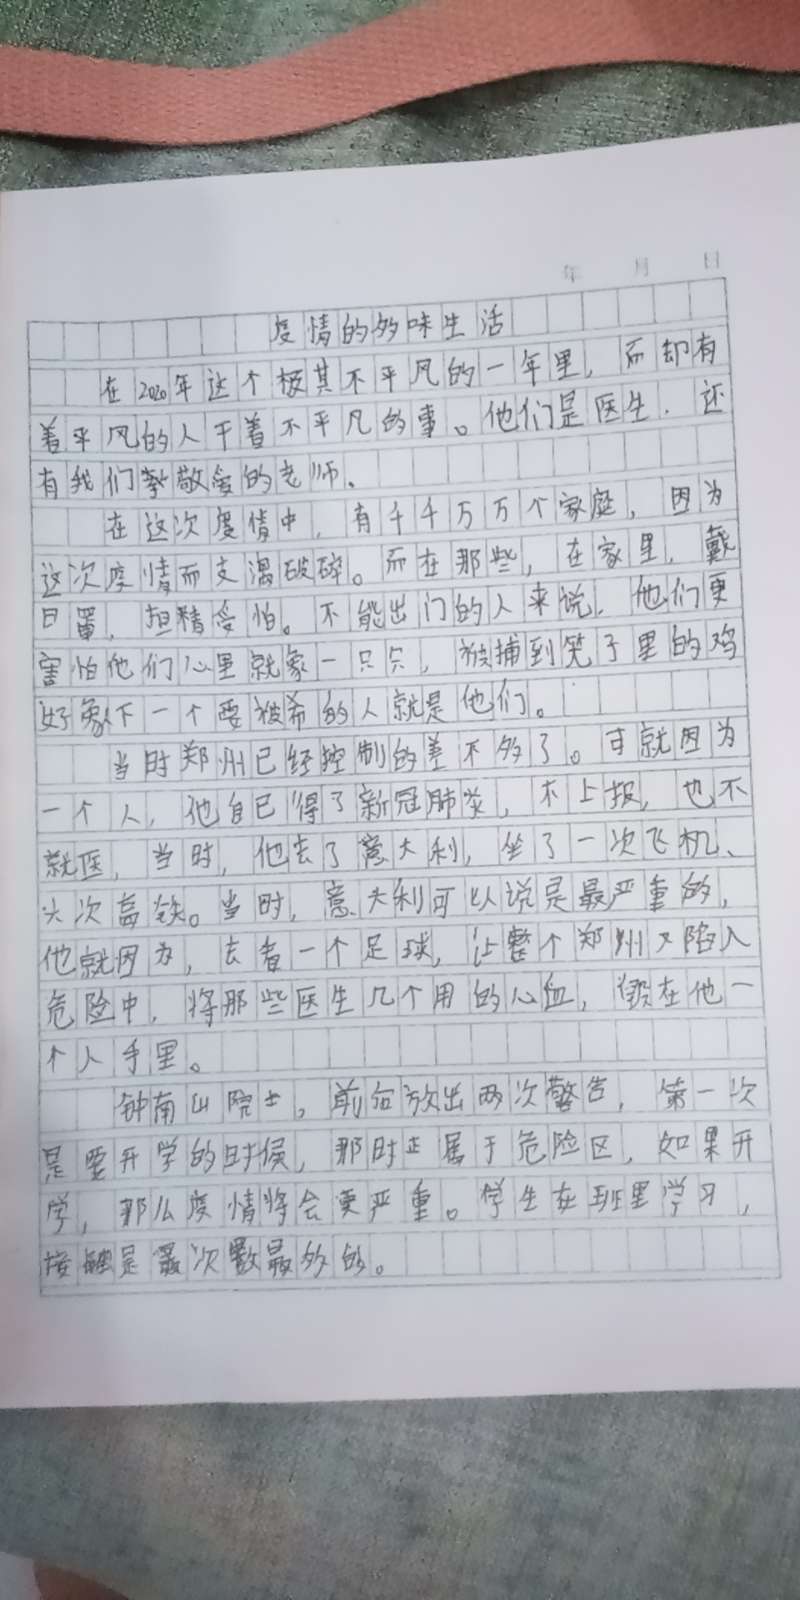 年 月 日
疫情的多味生活
在2020年这个极其不平风的一年里，而却有
着平风的人干着不平凡的事。他们是医生．还
有我们挚敬爱的老师。
在这次疫情中，有千千万万个家庭，因为
这次疫情而支濡破碎。而在那些，在家里，戴
口罩，担精受怕。不能出门的人来说，他们更
害怕他们心里就象一只只，被捕到笼子里的鸡
好象下一个要被杀的人就是他们。
当时郑州已经控制的差不多了。可就因为
一个人，他自已得了新冠肺炎，不上报，也不
就医，当时，他去了意大利，坐了一次飞机、
次高铁。当时，意大利可以说是最严重的，
他就因为，去看一个足球，让整个郑州又陷入
危险中，将那些医生几个用的心血，毁在他一
个人手里。
钟南山院士，前后放出两次警告，第一次
是要开学的时候，那时正属于危险区，如果开
学，那么疫情将会更严重。学生在班里学习，
接触是最次数最多的。